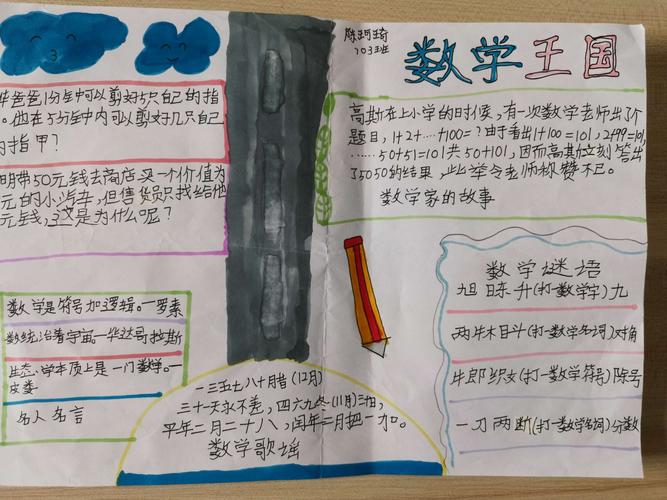 陈珂琦
703班
数学王国
爸爸1分钟可以剪好5只自己的指
。他在5分钟内可以剪好几只自己
指甲?
明带50元钱去商店买一个价值为
元的小汽车,但售货员只找给他
元钱,这是为什么呢?
高斯在上小学的时候,有一次数学老师出了个
题目,1+2+…+100=?由于看出1+100=101,2+99=101,
……50+51=101共50+101,因而高斯立刻答出
了5050的结果,此举令老师称赞不已。
数学家的故事
数学是符号加逻辑。—罗素
数统治着宇宙。—毕达哥拉斯
生态学本质上是一门数学。—
皮娄
名人名言
数学谜语
旭日东升(打一数学字)九
两牛木目斗(打一数学名词)对角
牛郎织女(打一数学符号)除号
一刀两断(打一数学名词)分数
一三五七八十月腊(12月)
三十一天永不差,四六九冬(11月)三十日,
平年二月二十八,闰年二月把一加。
数学歌谣